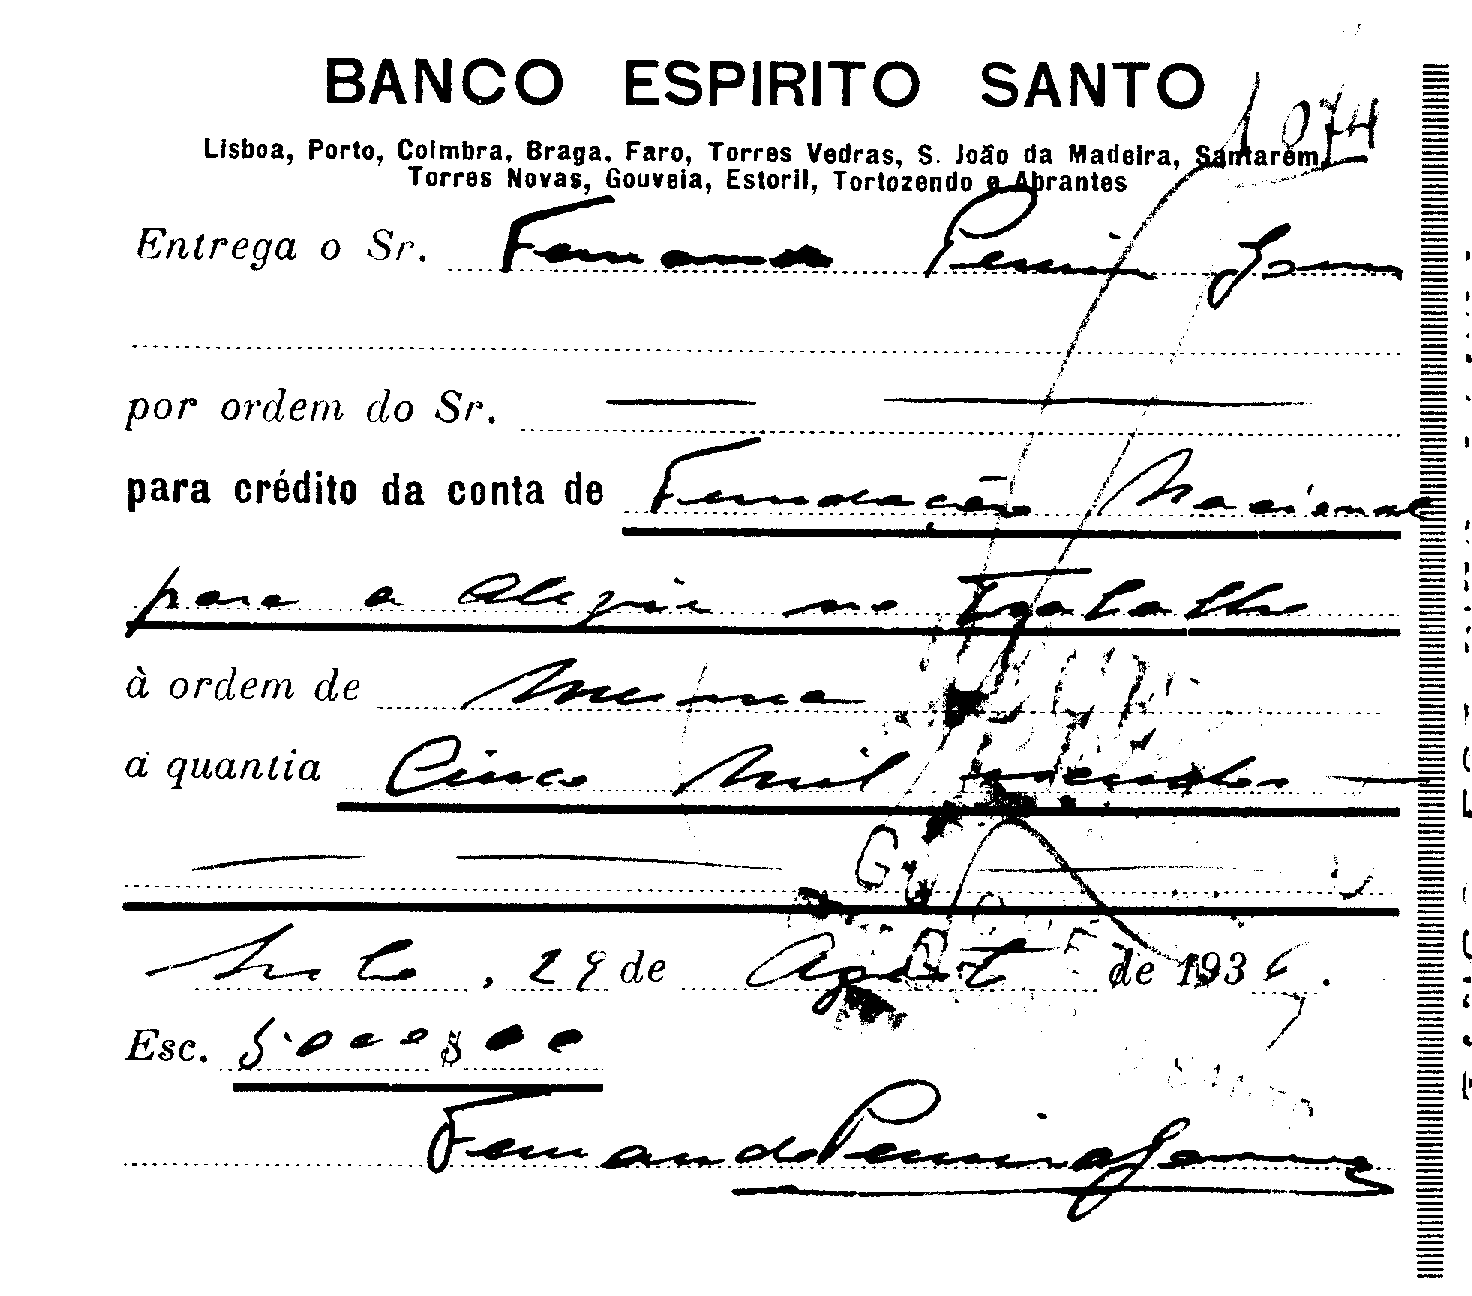 BANCO ESPIRITO SANTO
1074
Lisboa, Porto, Coimbra, Braga, Faro, Torres Vedras, S. João da Madeira, Santarém,
Torres Novas, Gouveia, Estoril, Tortozendo e Abrantes
Entrega o Sr. Fernando Pereira Gomes
por ordem do Sr.
para crédito da conta de Fundação Nacional
para a Alegria no Trabalho
à ordem de mesma
a quantia Cinco mil escudos
, 29 de Agosto de 1936.
Esc. 5.000$00
Fernando Pereira Gomes